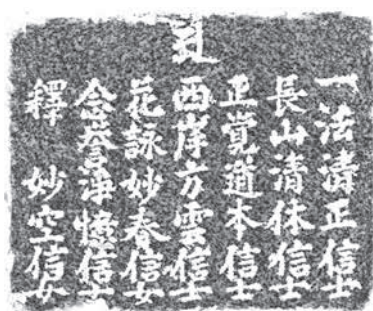 一法清正信士
長山清休信士
正覚道本信士
西岸方雲信士
花詠妙春信女
念誉浄憶信士
釋　妙空信女